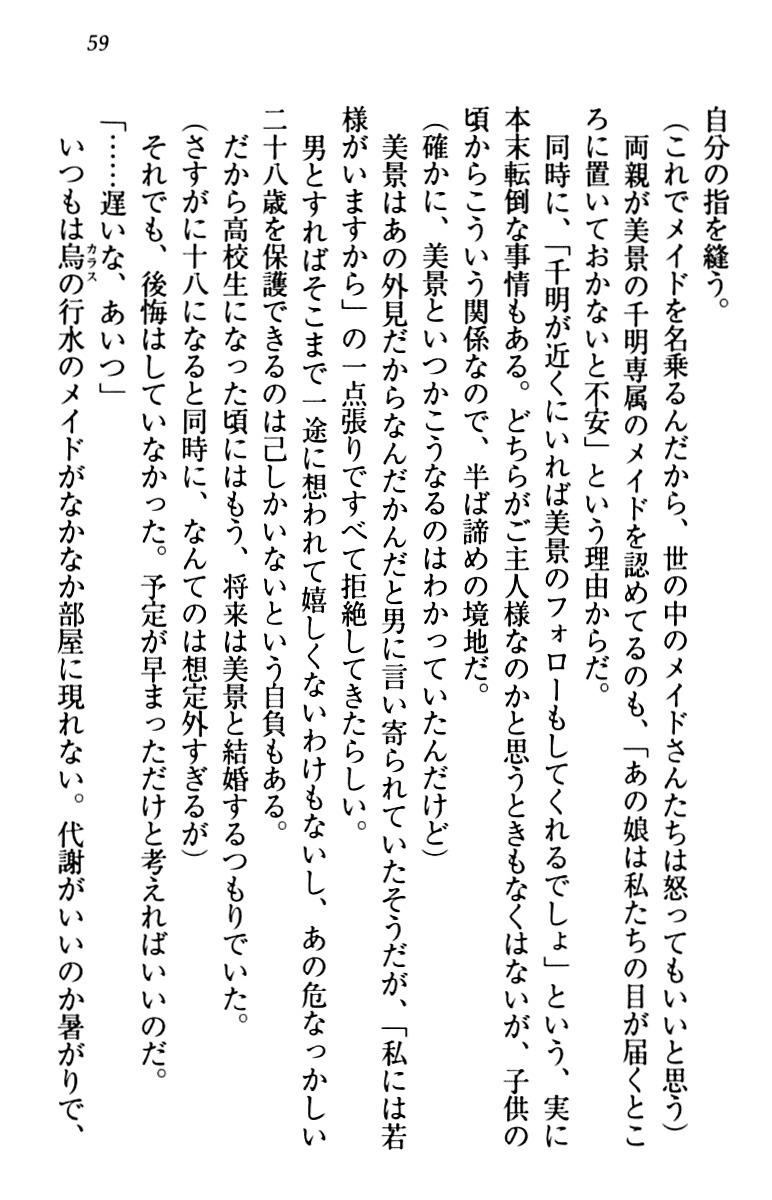 59
自分の指を縫う。
(これでメイドを名乗るんだから、世の中のメイドさんたちは怒ってもいいと思う)
両親が美景の千明専属のメイドを認めてるのも、「あの娘は私たちの目が届くとこ
ろに置いておかないと不安」という理由からだ。
同時に、「千明が近くにいれば美景のフォローもしてくれるでしょ」という、実に
本末転倒な事情もある。どちらがご主人様なのかと思うときもなくはないが、子供の
頃からこういう関係なので、半ば諦めの境地だ。
(確かに、美景といつかこうなるのはわかっていたんだけど)
美景はあの外見だからなんだかんだと男に言い寄られていたそうだが、「私には若
様がいますから」の一点張りですべて拒絶してきたらしい。
男とすればそこまで一途に想われて嬉しくないわけもないし、あの危なっかしい
二十八歳を保護できるのは己しかいないという自負もある。
だから高校生になった頃にはもう、将来は美景と結婚するつもりでいた。
(さすがに十八になると同時に、なんてのは想定外すぎるが)
それでも、後悔はしていなかった。予定が早まっただけと考えればいいのだ。
「……遅いな、あいつ」
いつもは烏カラスの行水のメイドがなかなか部屋に現れない。代謝がいいのか暑がりで、